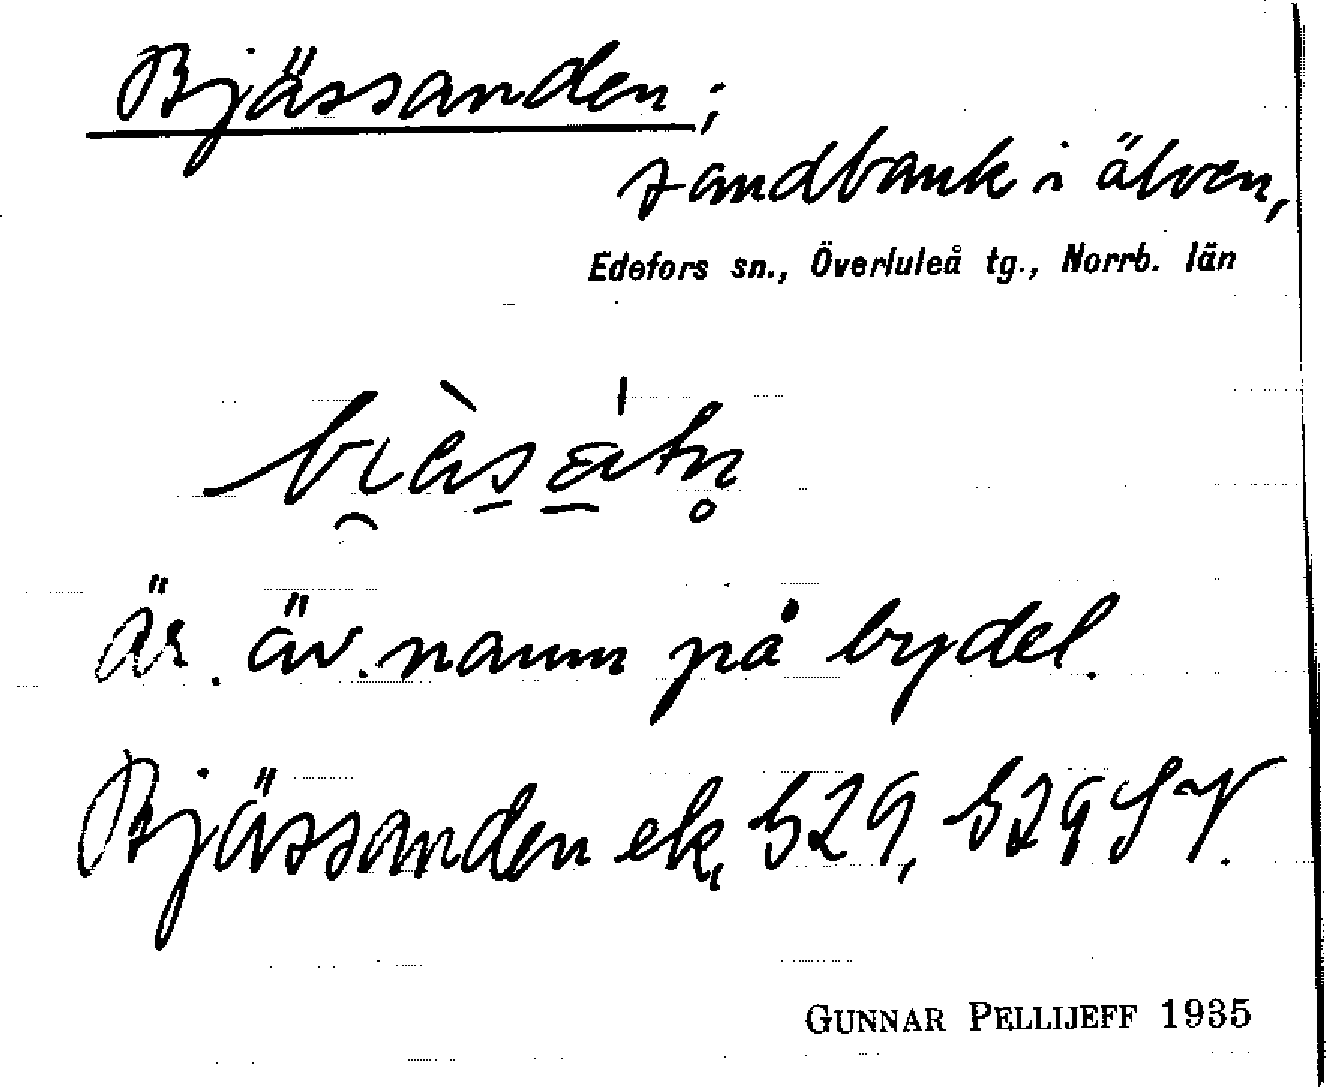 Bjässanden;
sandbank i älven,
Edefors sn., Överluleå tg., Norrb. län
är. äv. namn på bydel.
Bjässanden ek, 529, 529 SV.
GUNNAR PELLIJEFF 1935